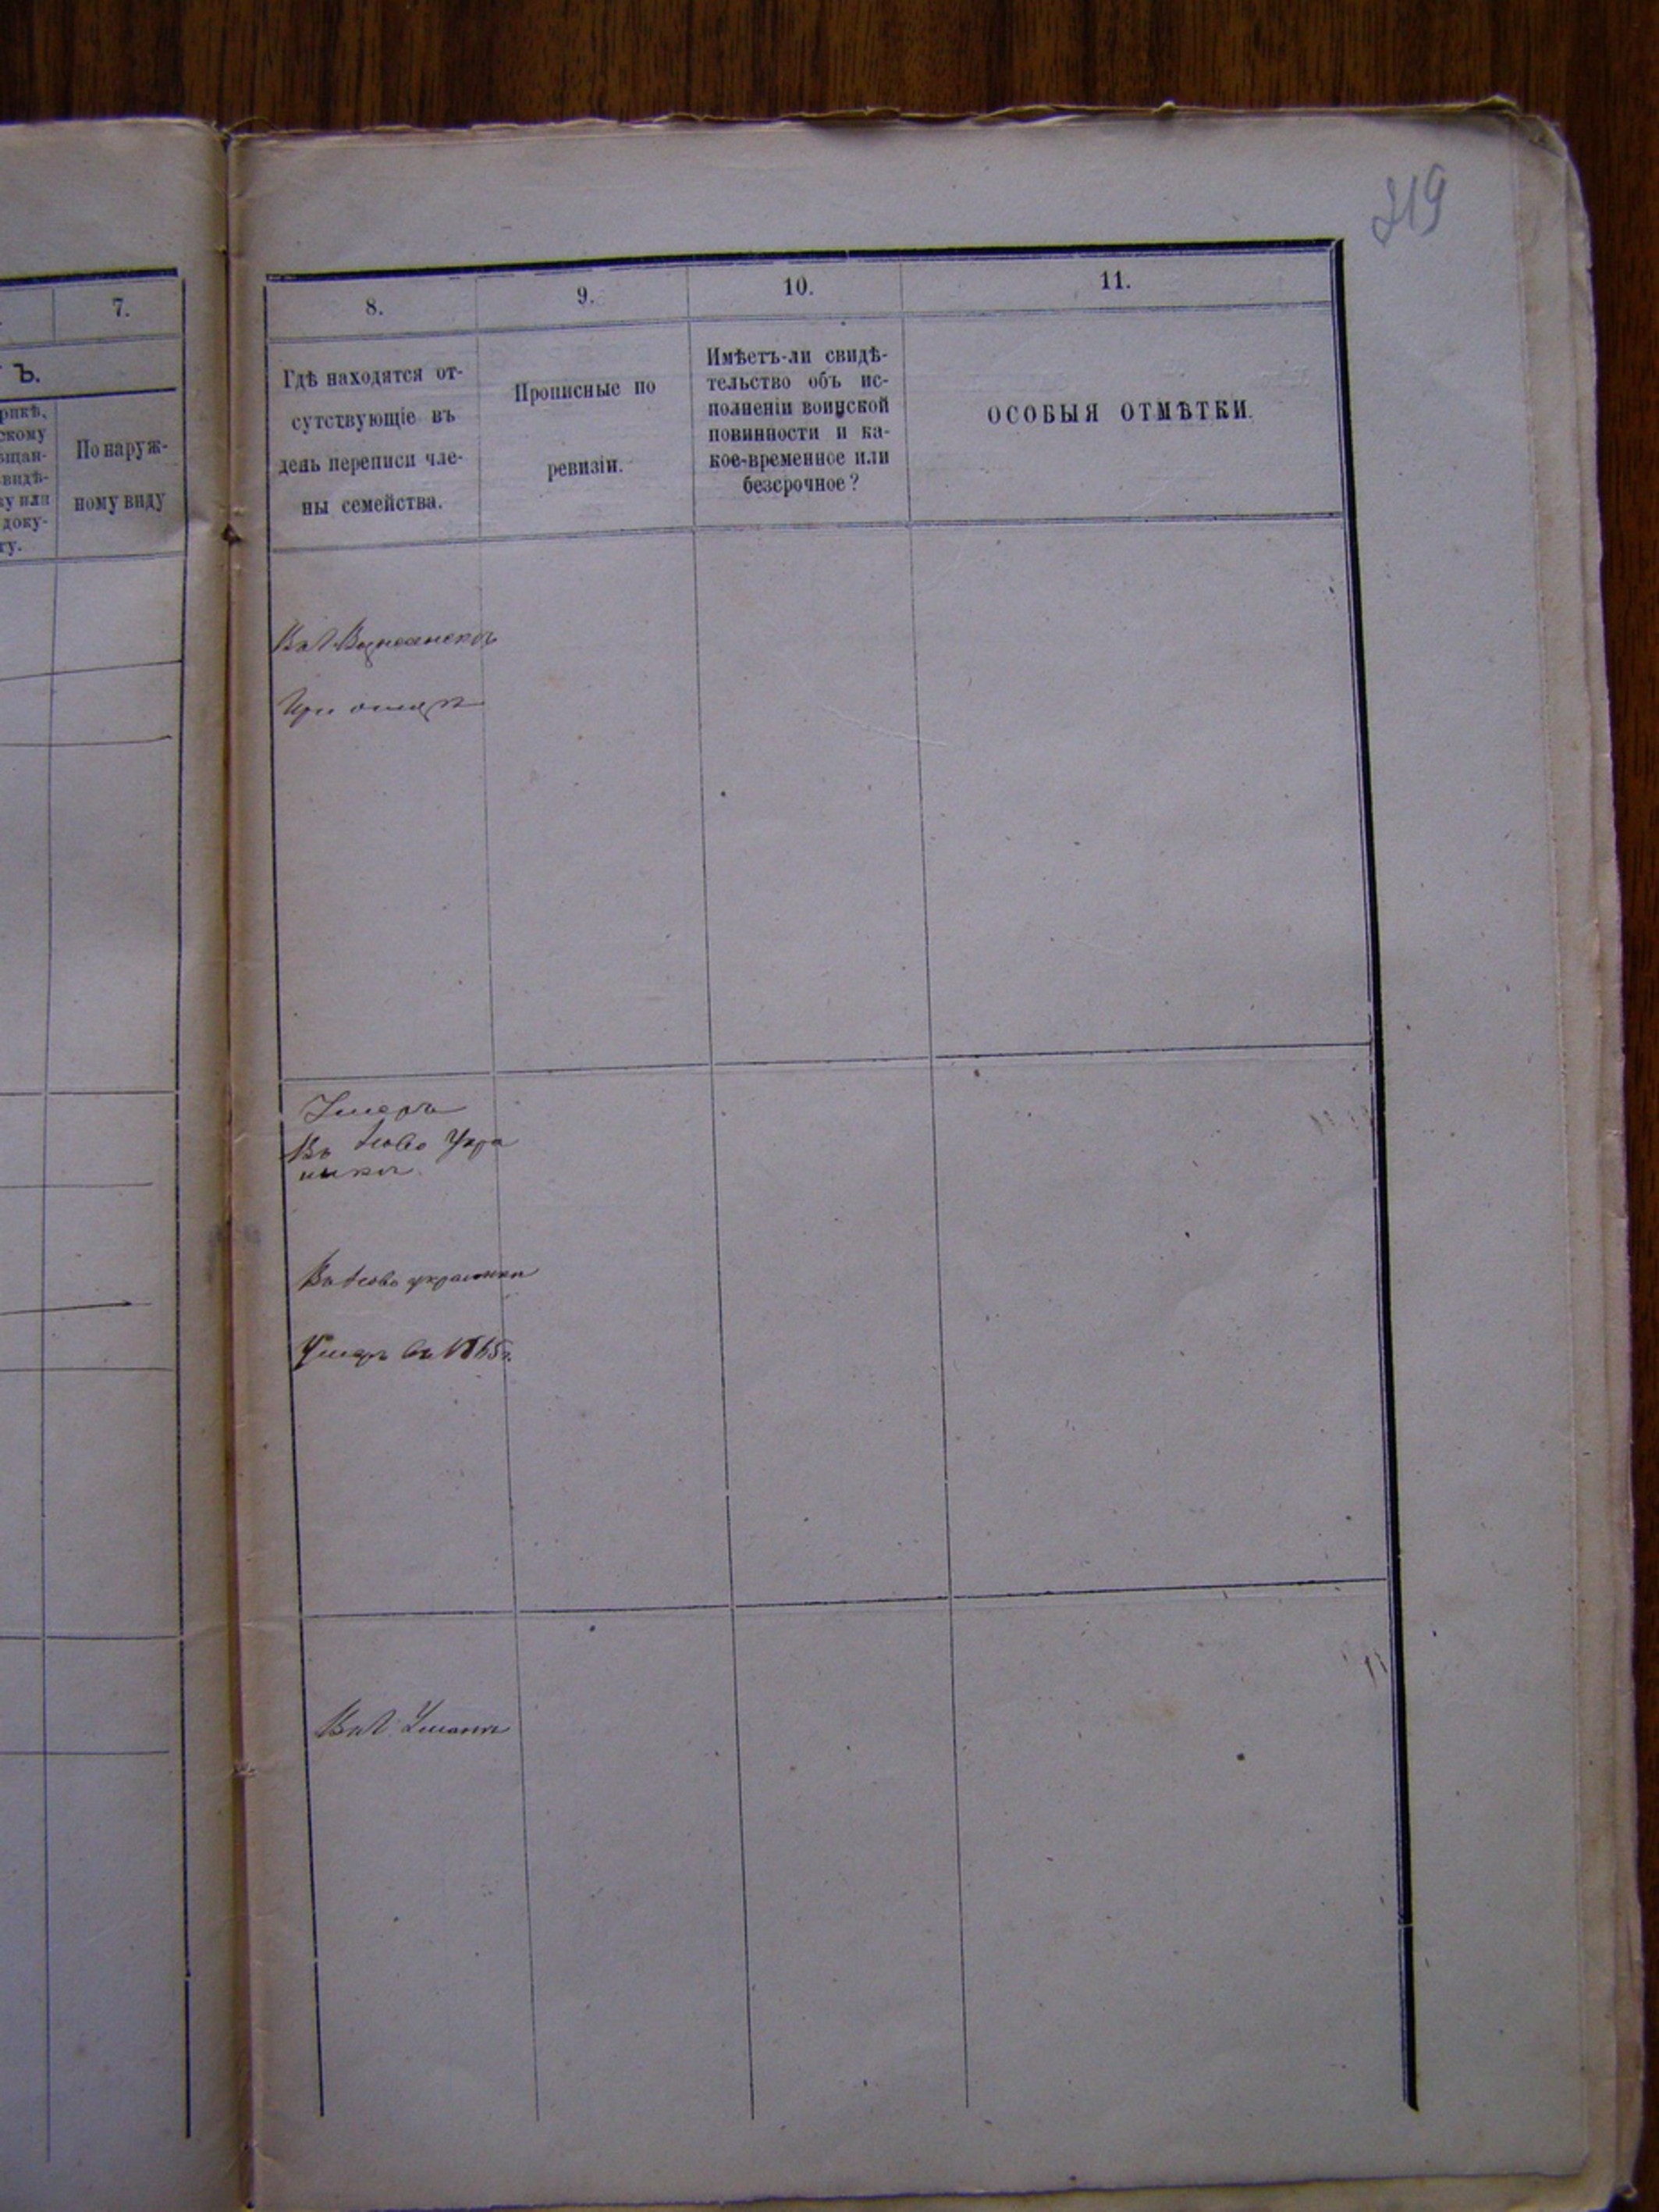 319
7.
Ъ.
По наруж-
ному виду
8.
9.
10.
11.
Гдѣ находятся от-
сутствующіе въ
день переписи чле-
ны семейства.
Прописные по
ревизіи.
Имѣетъ-ли свидѣ-
тельство объ ис-
полненіи воинской
повинности и ка-
кое-временное или
безсрочное?
ОСОБЫЯ ОТМѢТКИ.
При отцѣ
Умеръ
Въ Ново Укра
инкѣ
Въ Ново украинки
Умеръ въ 1865г.
Въ г. Умани